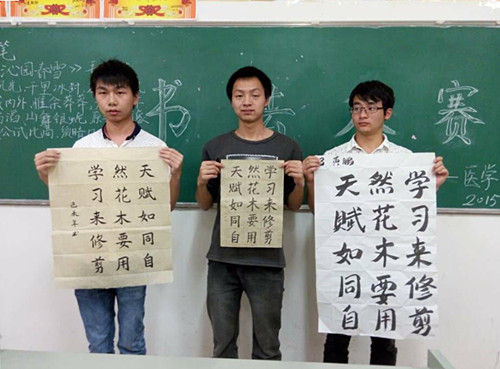 笔
沁园春雪
千里冰封
内外 惟余莽莽
山舞银蛇 原
公试比高
书 大 赛
医学
2015
天赋如同自
然花木要用
学习来修剪
天赋如同自
然花木要用
学习来修剪
天赋如同自
然花木要用
学习来修剪